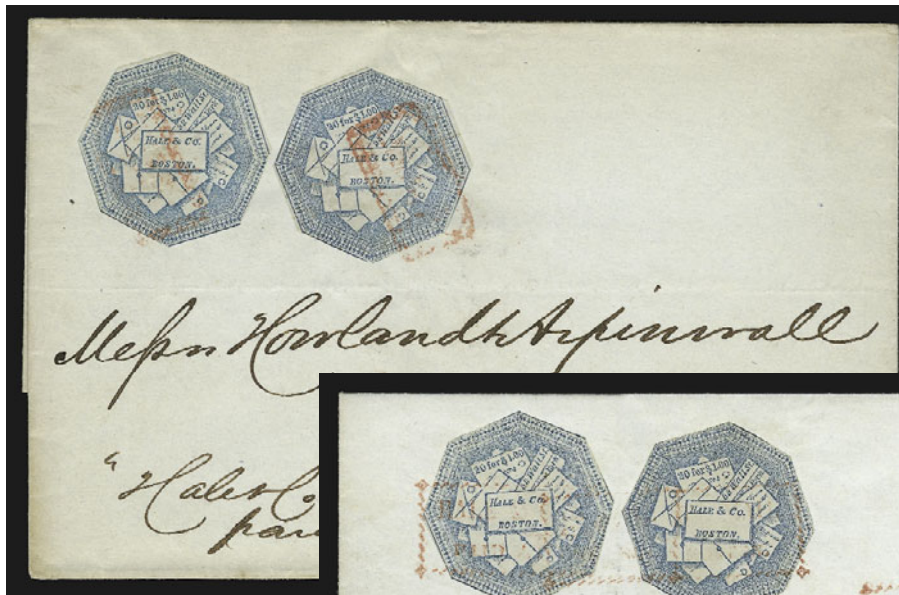 20 for $1.00
HALE & CO.
BOSTON.
20 for $1.00
HALE & Co.
BOSTON.
Messrs Howland & Aspinwall
"Hale & Co
20 for $1.00
HALE & Co.
BOSTON.
20 for $1.00
HALE & Co.
BOSTON.